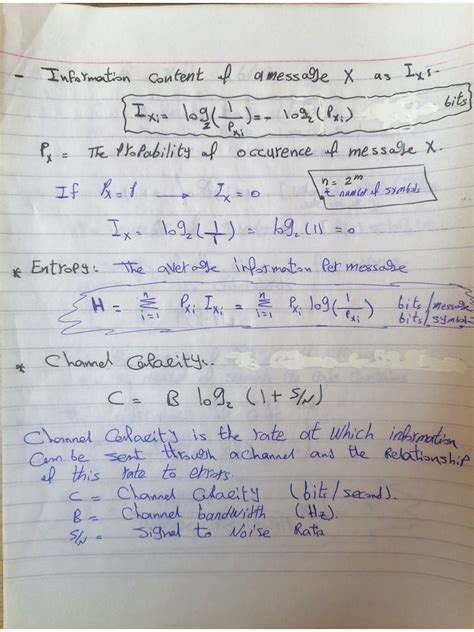 - Information content of a message X as Ixs-
Ixi = log2(1/Pxi) = - log2(Pxi) bits
Px = The Propability of occurence of message X.
If Px = 1 → Ix = 0
n = 2^m
number of symbols
Ix = log2(1/1) = log2(1) = 0
* Entropy: The average information Per message
H = Σ_{i=1}^{n} Pxi Ixi = Σ_{i=1}^{n} Pxi log(1/Pxi) bits/message
bits/symbol
* Channel Capacity:.
C = B log2 (1 + S/N)
Channel Capacity is the rate at which information
Can be sent through a channel and the Relationship
of this rate to errors.
C = Channel Capacity (bits/second).
B = Channel bandwidth (Hz).
S/N = Signal to Noise Ratio